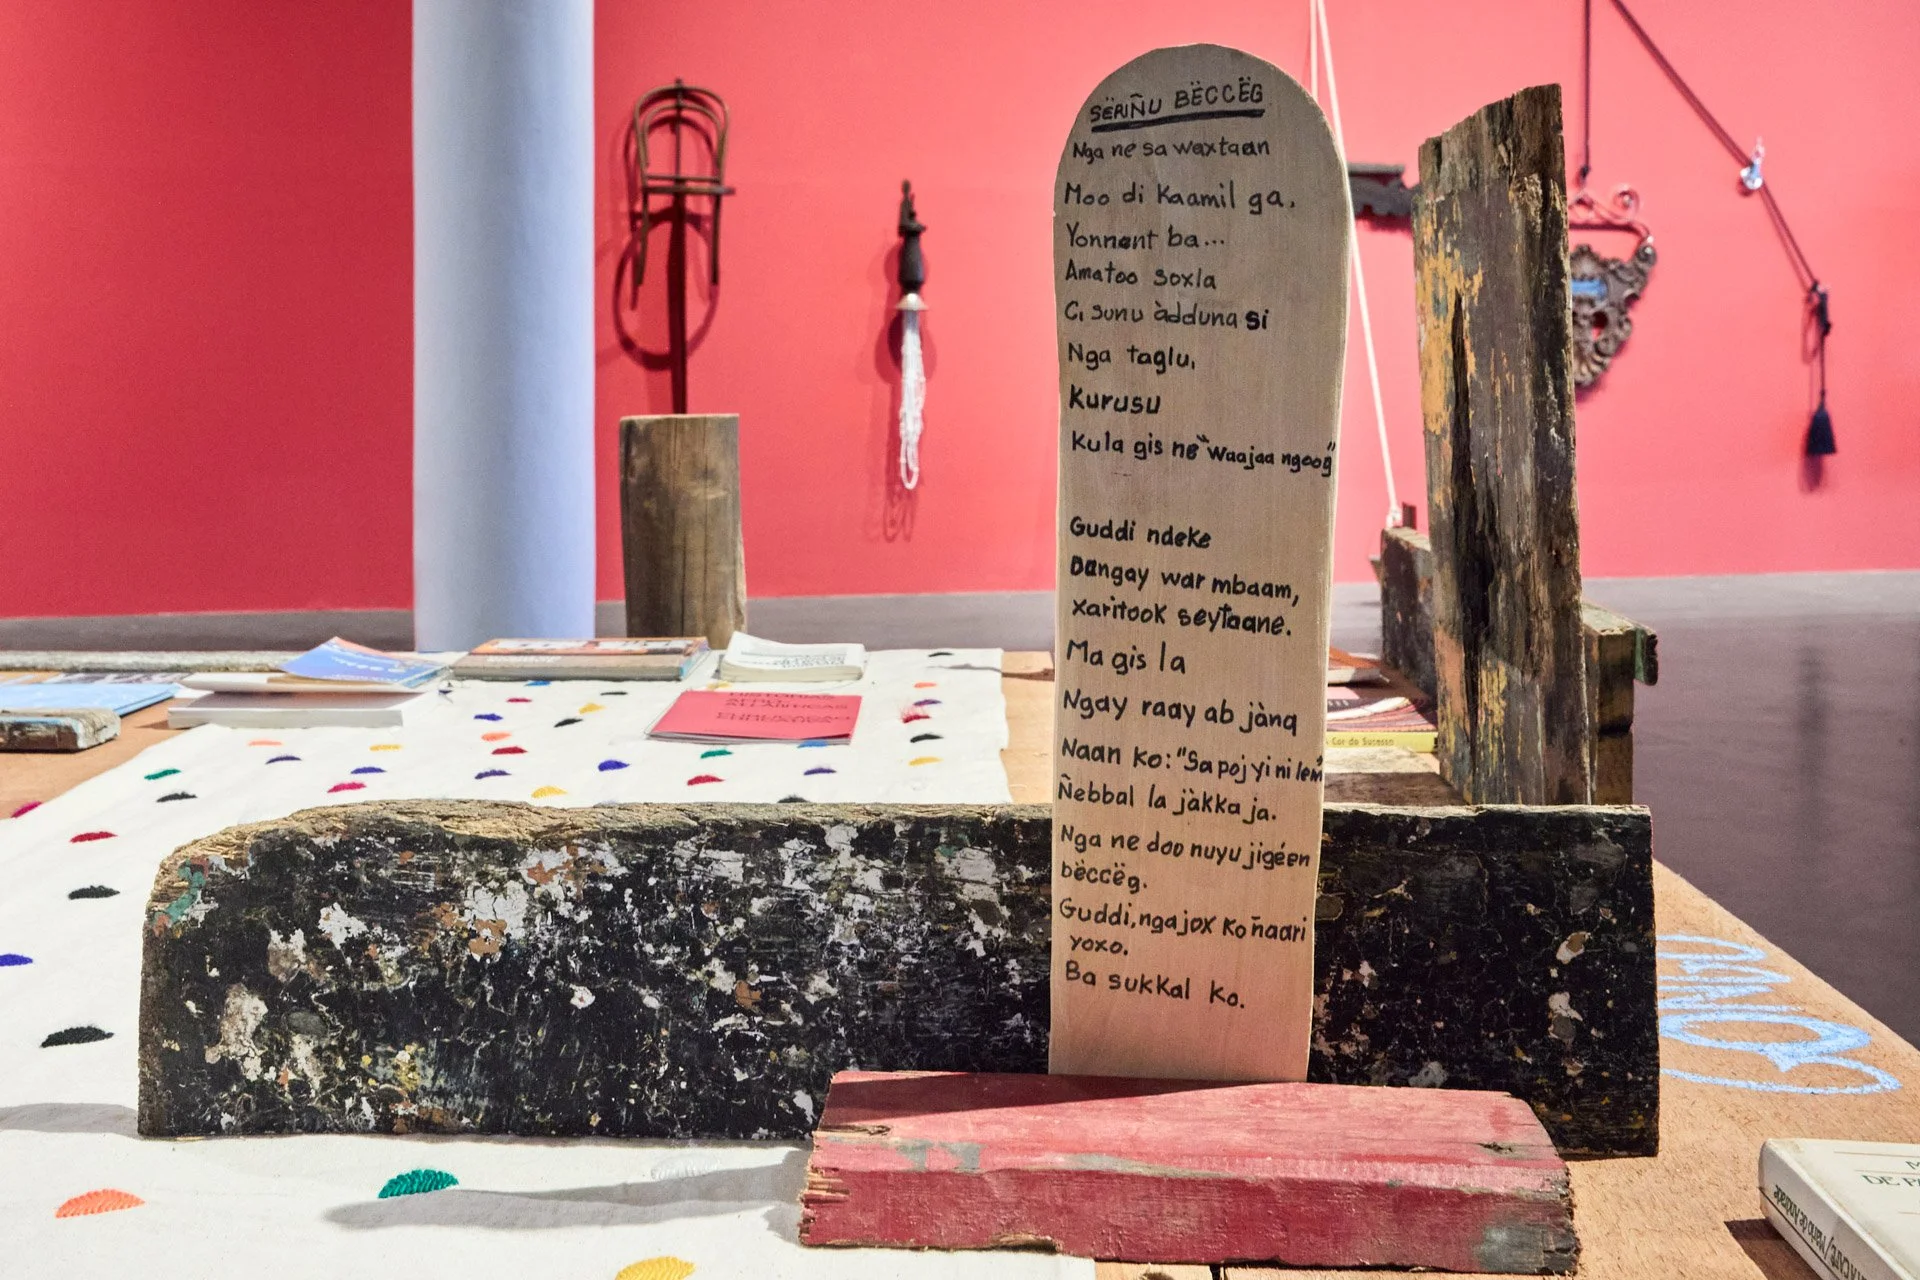 SËRIÑU BËCCËG
Nga ne sa waxtaan
Moo di Kaamil ga.
Yonnent ba...
Amatoo soxla
Ci sunu àdduna si
Nga taglu,
Kurusu
Kula gis ne "waajaa ngoog"
Guddi ndeke
Dangay war mbaam,
Xaritook seytaane.
Ma gis la
Ngay raay ab jànq
Naan ko: "Sa poj yi ni lem"
Ñebbal la jàkka ja.
Nga ne doo nuyu jigéen
bëccëg.
Guddi, nga jox ko ñaari
yoxo.
Ba sukkal ko.
HISTÓRIAS
AFRO-
ATLÂNTICAS
Cor do Sucesso
DE PA
Mário de Andrade